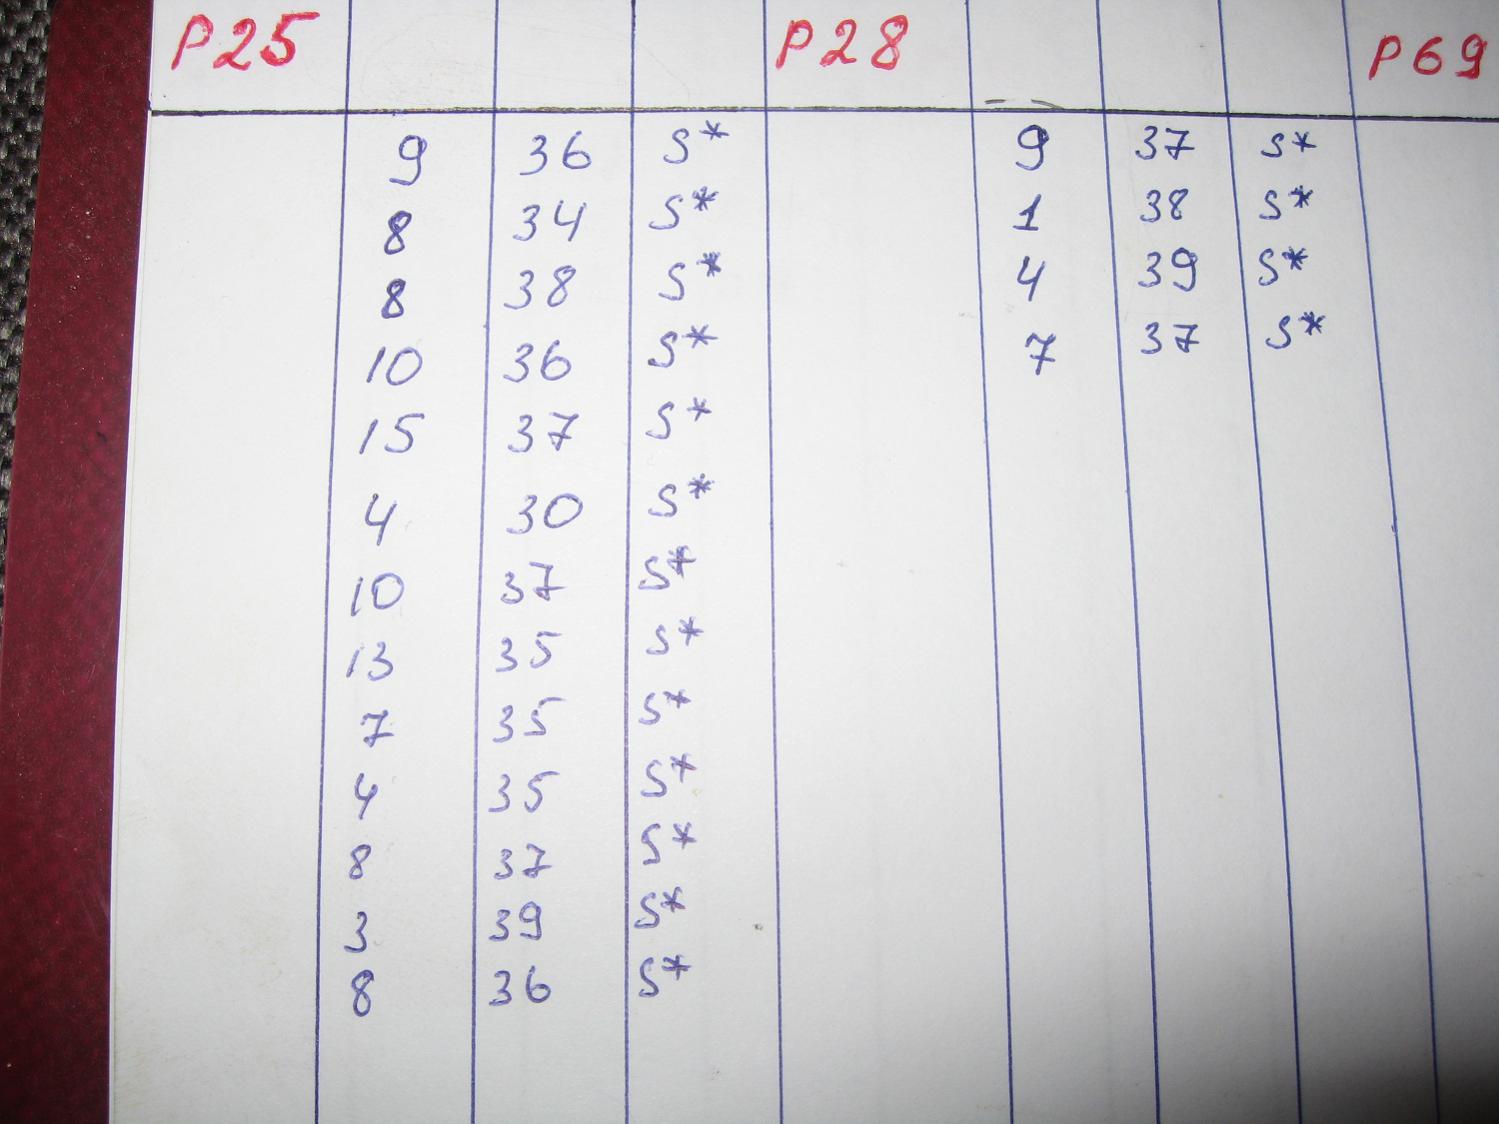 P25 P28 P69
9 36 S* 9 37 S*
8 34 S* 1 38 S*
8 38 S* 4 39 S*
10 36 S* 7 37 S*
15 37 S*
4 30 S*
10 37 S*
13 35 S*
7 35 S*
4 35 S*
8 37 S*
3 39 S*
8 36 S*